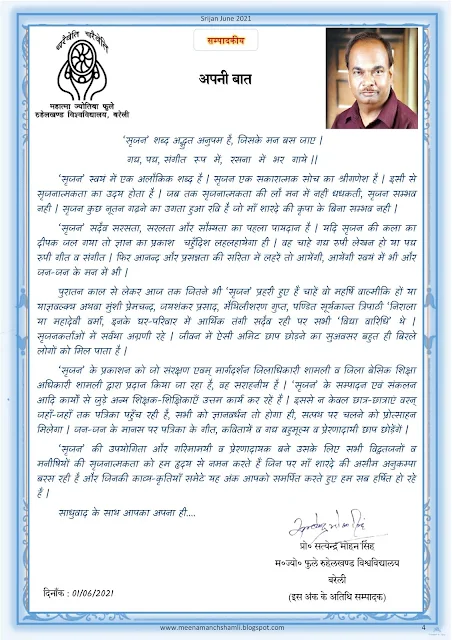 Srijan June 2021
सम्पादकीय
अपनी बात
महात्मा ज्योतिबा फुले
रुहेलखण्ड विश्वविद्यालय, बरेली
'सृजन' शब्द अद्भुत अनुपम है, जिसके मन बस जाए |
गद्य, पद्य, संगीत रूप में, रसना में भर गाये ||
'सृजन' स्वयं में एक अलौकिक शब्द है | सृजन एक सकारात्मक सोच का श्रीगणेश है | इसी से
सृजनात्मकता का उदय होता है | जब तक सृजनात्मकता की लौ मन में नहीं धधकती, सृजन सम्भव
नहीं | सृजन कुछ नूतन गढ़ने का उगता हुआ रवि है जो माँ शारदे की कृपा के बिना सम्भव नहीं |
'सृजन' सदैव सरसता, सरलता और सौम्यता का पहला पायदान है | यदि सृजन की कला का
दीपक जल गया तो ज्ञान का प्रकाश चहुँदिश लहलहायेगा ही | वह चाहे गद्य रुपी लेखन हो या पद्य
रुपी गीत व संगीत | फिर आनन्द और प्रसन्नता की सरिता में लहरें तो आयेंगी, आयेंगी स्वयं में भी और
जन-जन के मन में भी |
पुरातन काल से लेकर आज तक जितने भी 'सृजन' प्रहरी हुए हैं चाहें वो महर्षि वाल्मीकि हों या
याज्ञवल्क्य अथवा मुंशी प्रेमचन्द, जयशंकर प्रसाद, मैथिलीशरण गुप्त, पण्डित सूर्यकान्त त्रिपाठी 'निराला
या महादेवी वर्मा, इनके घर-परिवार में आर्थिक तंगी सदैव रही पर सभी 'विद्या वारिधि' थे |
सृजनकर्ताओं में सर्वथा अग्रणी रहे | जीवन में ऐसी अमिट छाप छोड़ने का सुअवसर बहुत ही बिरले
लोगों को मिल पाता है |
'सृजन' के प्रकाशन को जो संरक्षण एवम् मार्गदर्शन जिलाधिकारी शामली व जिला बेसिक शिक्षा
अधिकारी शामली द्वारा प्रदान किया जा रहा है, वह सराहनीय है | 'सृजन' के सम्पादन एवं संकलन
आदि कार्यों से जुड़े अन्य शिक्षक-शिक्षिकाएँ उत्तम कार्य कर रहे हैं | इससे न केवल छात्र-छात्राएं वरन्
जहाँ-जहाँ तक पत्रिका पहुँच रही है, सभी को ज्ञानवर्धन तो होगा ही, सत्पथ पर चलने को प्रोत्साहन
मिलेगा | जन-जन के मानस पर पत्रिका के गीत, कवितायें व गद्य बहुमूल्य व प्रेरणादायी छाप छोड़ेंगें |
'सृजन' की उपयोगिता और गरिमामयी व प्रेरणादायक बने उसके लिए सभी विद्वतजनों व
मनीषियों की सृजनात्मकता को हम हृदय से नमन करते हैं जिन पर माँ शारदे की असीम अनुकम्पा
बरस रही है और जिनकी काव्य-कृतियाँ समेटे यह अंक आपको समर्पित करते हुए हम सब हर्षित हो रहे
हैं |
साधुवाद के साथ आपका अपना ही....
प्रो० सत्येन्द्र मोहन सिंह
म०ज्यो० फुले रुहेलखण्ड विश्वविद्यालय
बरेली
दिनाँक : 01/06/2021
(इस अंक के अतिथि सम्पादक)
www.meenamanchshamli.blogspot.com
4